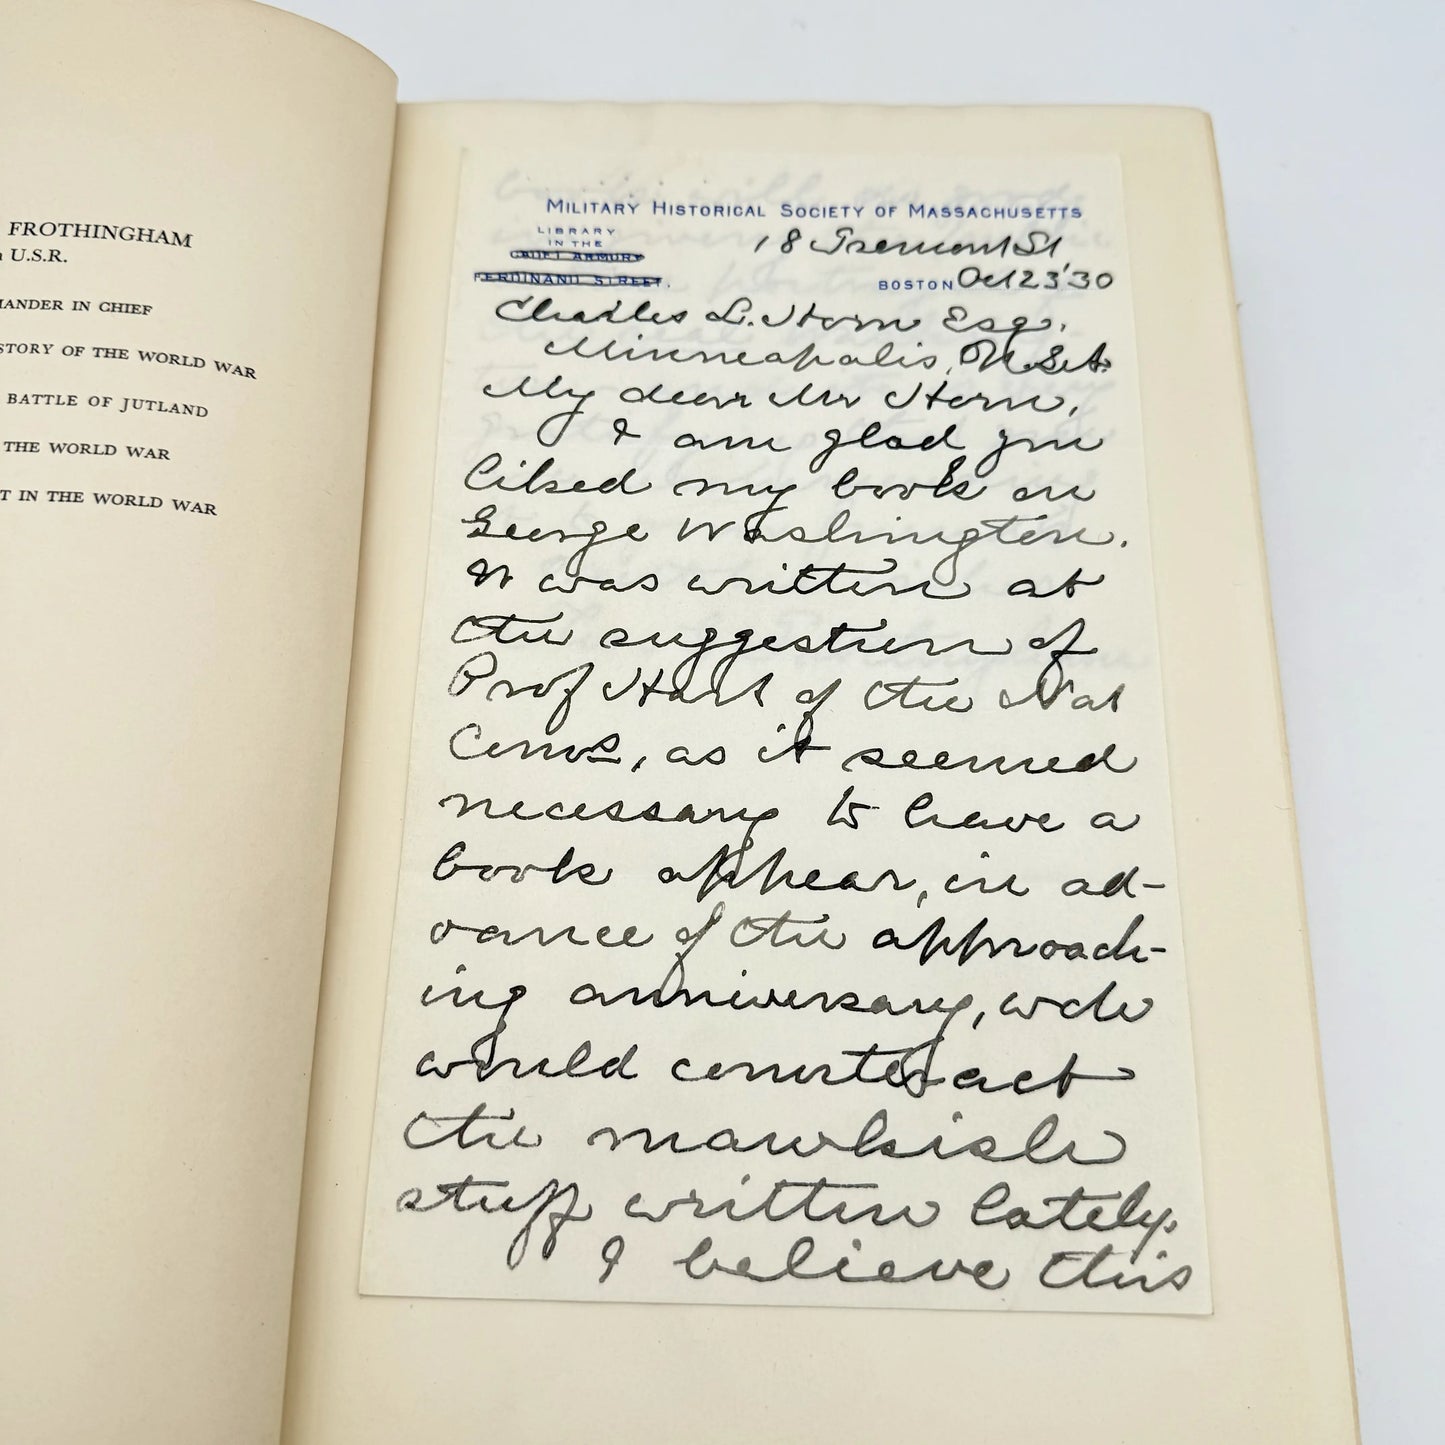 FROTHINGHAM
U.S.R.
MANDER IN CHIEF
STORY OF THE WORLD WAR
BATTLE OF JUTLAND
THE WORLD WAR
T IN THE WORLD WAR
MILITARY HISTORICAL SOCIETY OF MASSACHUSETTS
LIBRARY
IN THE
CADET ARMORY
FERDINAND STREET.
18 Tremont St
BOSTON Oct 23 '30
Charles L. Horn Esq.
Minneapolis,
My dear Mr Horn,
I am glad you
liked my book on
George Washington.
It was written at
the suggestion of
Prof Hart of the Nat
Coms, as it seemed
necessary to have a
book appear, in ad-
vance of the approach-
ing anniversary, wch
would counteract
the mawkish
stuff written lately.
I believe this